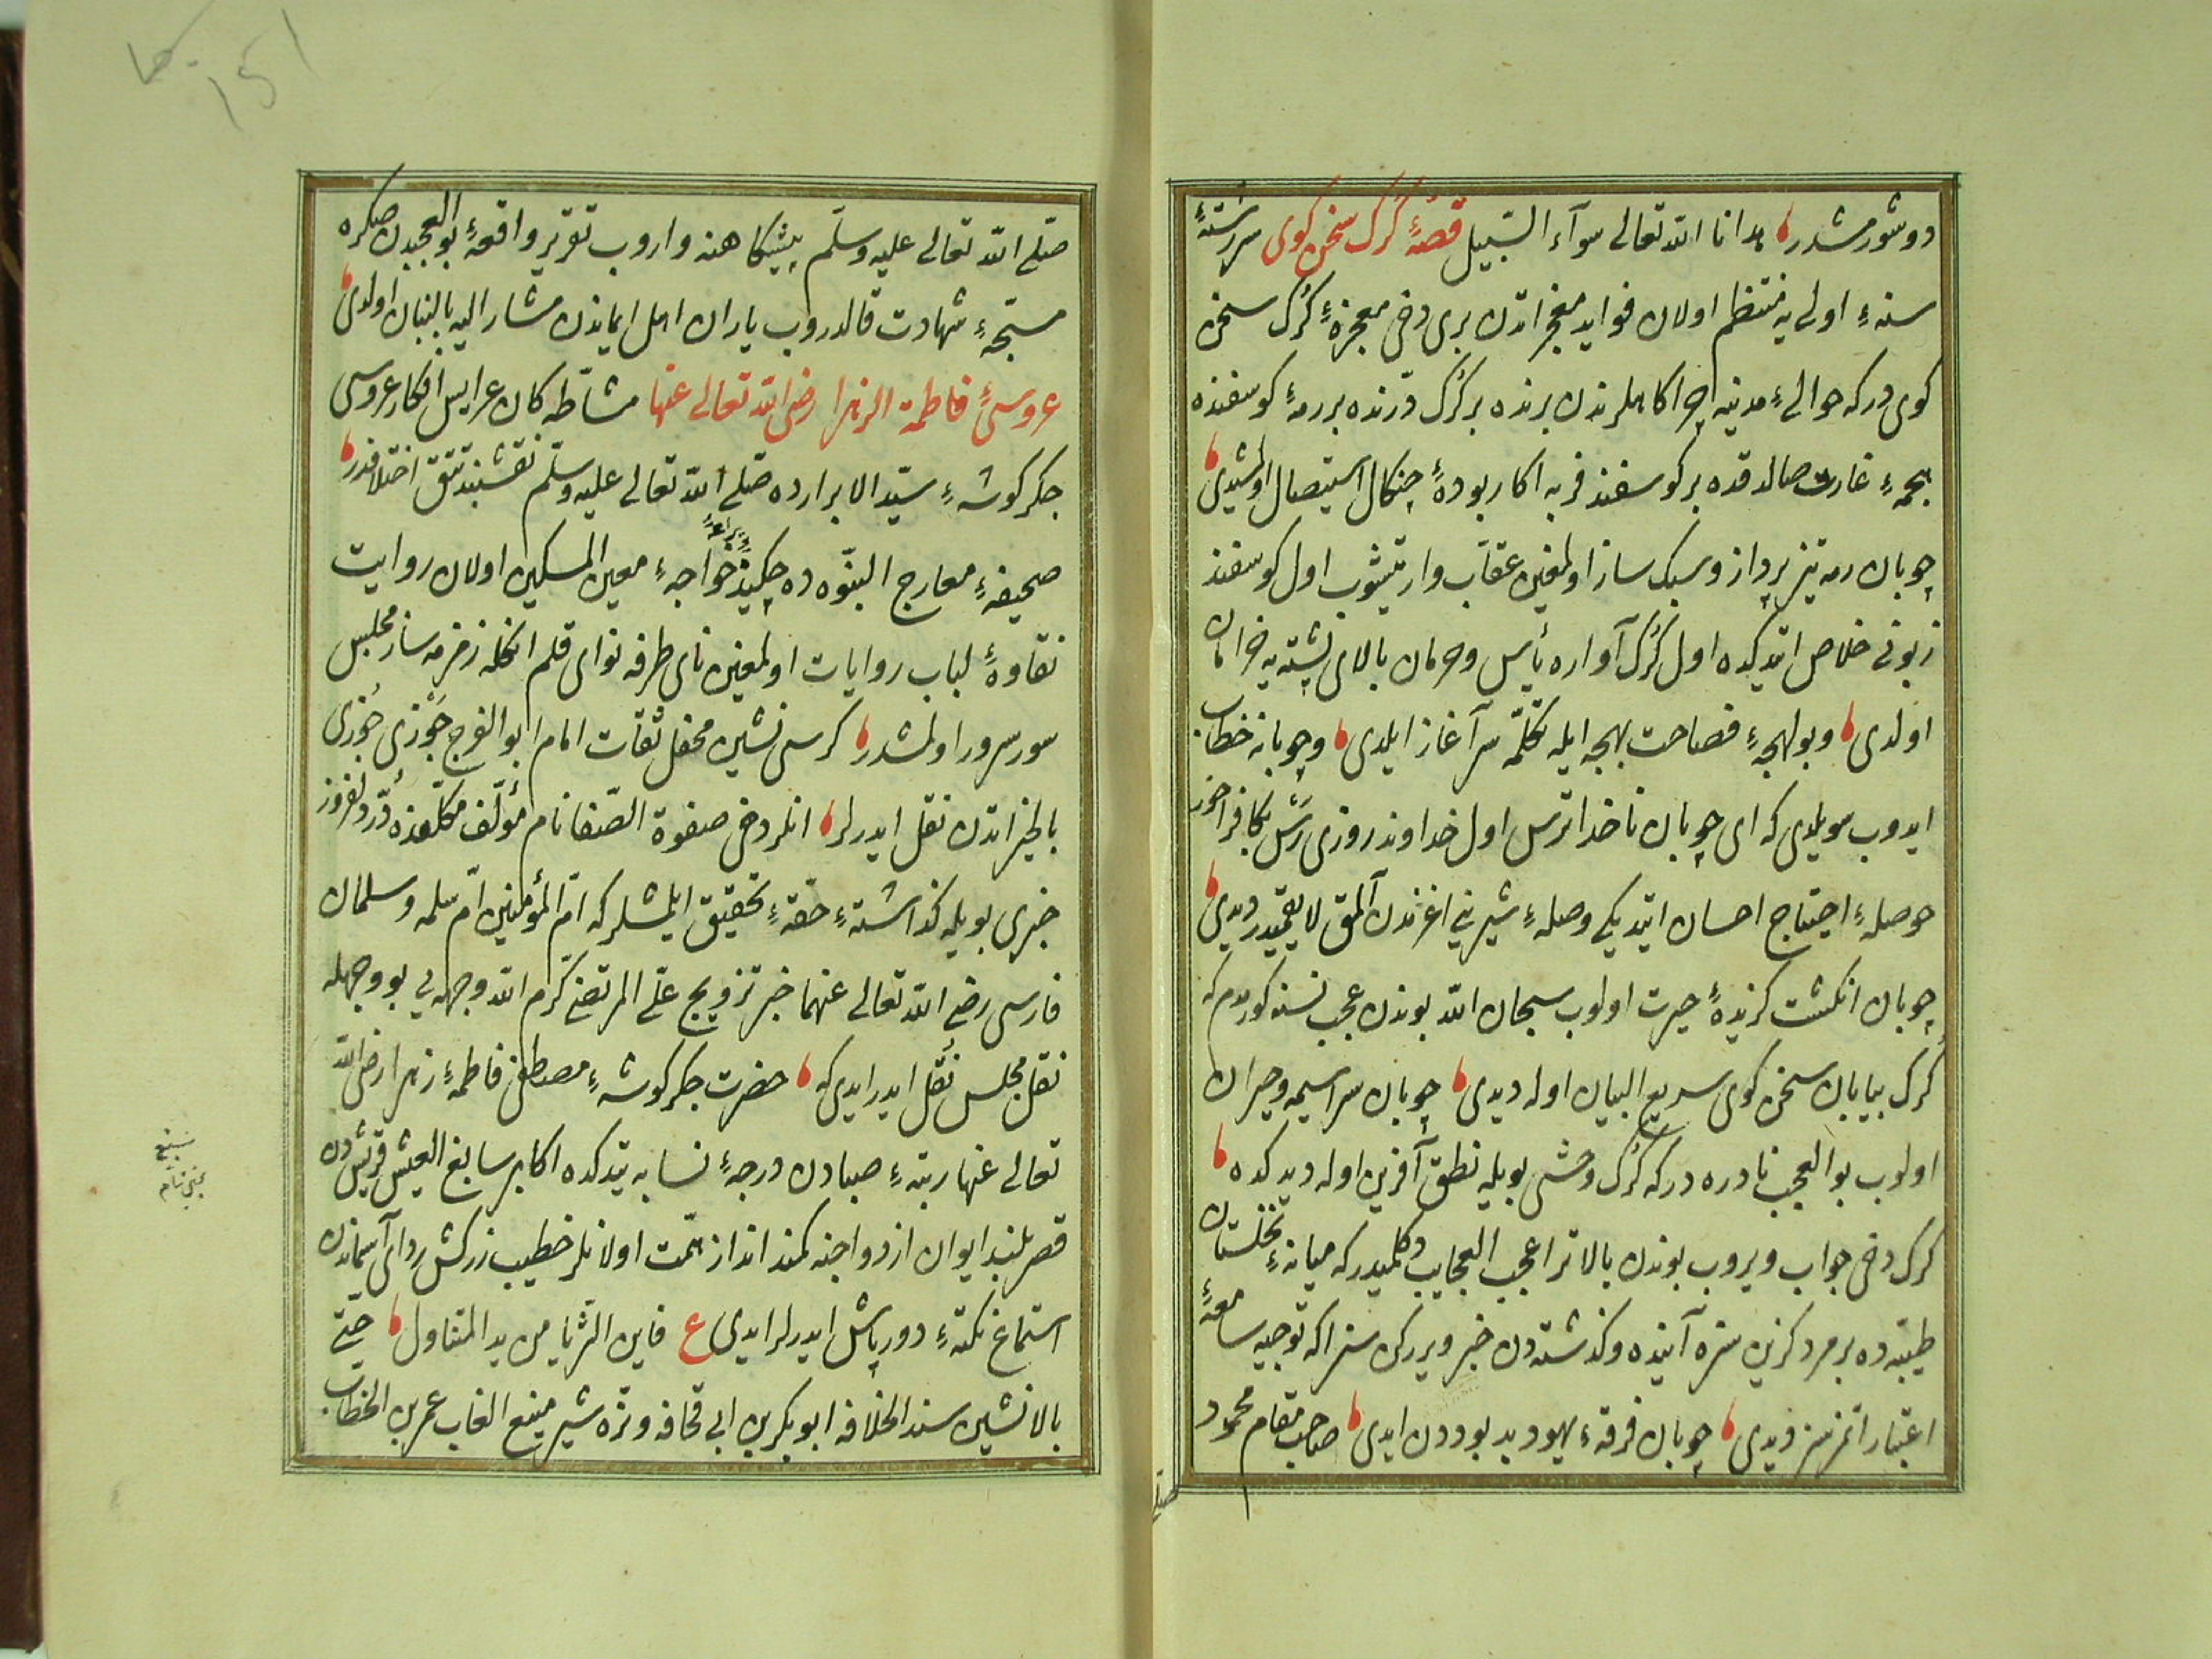 دوشورمشدر هدانا الله تعالى سوآء السّبيل قصّهٔ كُرك سخن كوى سررشتهٔ
سنهٔ اولى يه منتظم اولان فوايد معجزاتدن برى دخى معجزهٔ كُرك سخن
كوى دركه حوالىٔ مدينه چراكاهلرندن برنده بر كُرك درّنده بر رمهٔ كوسفنده
پنجهٔ غارت صالدقده بر كوسفند فربه اكا ربودهٔ چنكال استيصال اولمشيدى
چوبان رمه تيز پرواز و سبك ساز اولمغين عقاب وار يتيشوب اول كوسفند
زبونى خلاص ايتدكده اول كُرك آواره يأس و حرمان بالاى پشته يه خرامان
اولدى و بو لهجهٔ فصاحت بهجه ايله تكلّمه سرآغاز ايلدى و چوبانه خطاب
ايدوب سويلدى كه اى چوبان ناخدا ترس اول خداوند روزى رَسْ بكا فراخور
حوصلهٔ احتياج احسان ايتديكى وصلهٔ شيرينى اغزندن آلمق لايقميدر ديدى
چوبان انكشت كزيدهٔ حيرت اولوب سبحان الله بوندن عجب نسنه كورمدم كه
كُرك بيابان سخن كوى سريع البيان اوله ديدى چوبان سراسيمه و حيران
اولوب بو العجب نادره دركه كُرك وحشى بويله نطق آفرين اوله ديدكده
كرك دخى جواب ويروب بوندن بالاتر اعجب العجايب دكلميدركه ميانهٔ نخلستان
طيبه ده بر مرد كزين سزه آينده و كذشته دن خبر ويرركن سز اكه توجيه سامعهٔ
اعتبار اتمزسز ديدى چوبان فرقهٔ يهود بد بوددن ايدى صاحب مقام محمود
صلى
صلّى الله تعالى عليه وسلّم پيشكاهنه واروب تقرير واقعهٔ بو العجبدن صكره
مسبّحهٔ شهادت قالدروب ياران اهل ايماندن مشار اليه بالبنان اولدى
عروسىٔ فاطمة الزهرا رضى الله تعالى عنها مشّاطه كان عرايس افكار عروسى
جكر كوشهٔ سيّد الابرارده صلّى الله تعالى عليه وسلّم نقشبند تتق اختلافدر
صحيفهٔ معارج النبوّه ده چكيدهٔ يراعهٔ خواجهٔ معين المسكين اولان روايت
نقاوهٔ لباب روايات اولمغين ناى طرفه نواى قلم انكله زمزمه ساز مجلس
سور سرور اولمشدر كرسى نشين محفل ثقات امام ابو الفرج جَوْزى جُوزى
بالخير اتدن نقل ايدرلر انلر دخى صفوة الصّفا نام مؤلّف مكلّفنده دُرّ دلفروز
خبرى بويله كذاشتهٔ حقّهٔ تحقيق ايلمشلركه امّ المؤمنين امّ سلمه و سلمان
فارسى رضى الله تعالى عنهما خبر تزويج على المرتضى كرّم الله وجهه يى بو وجهله
نقل مجلس نُقل ايدر ايدى كه حضرت جكر كوشهٔ مصطفى فاطمهٔ زهرا رضى الله
تعالى عنها رتبهٔ صبادن درجهٔ نسايه يتدكده اكابر سابغ العيش قريشدن
قصر بلند ايوان ازدواجنه كمند انداز همّت اولانلر خطيب زركش رداى آسماندن
استماع نكتهٔ دور باش ايدرلر ايدى ع فاين الثّريا من يد المتناول حتّى
بالانشين سند الخلافه ابو بكر بن ابى قحافه و نره شير منيع الغاب عمر بن الخطاب